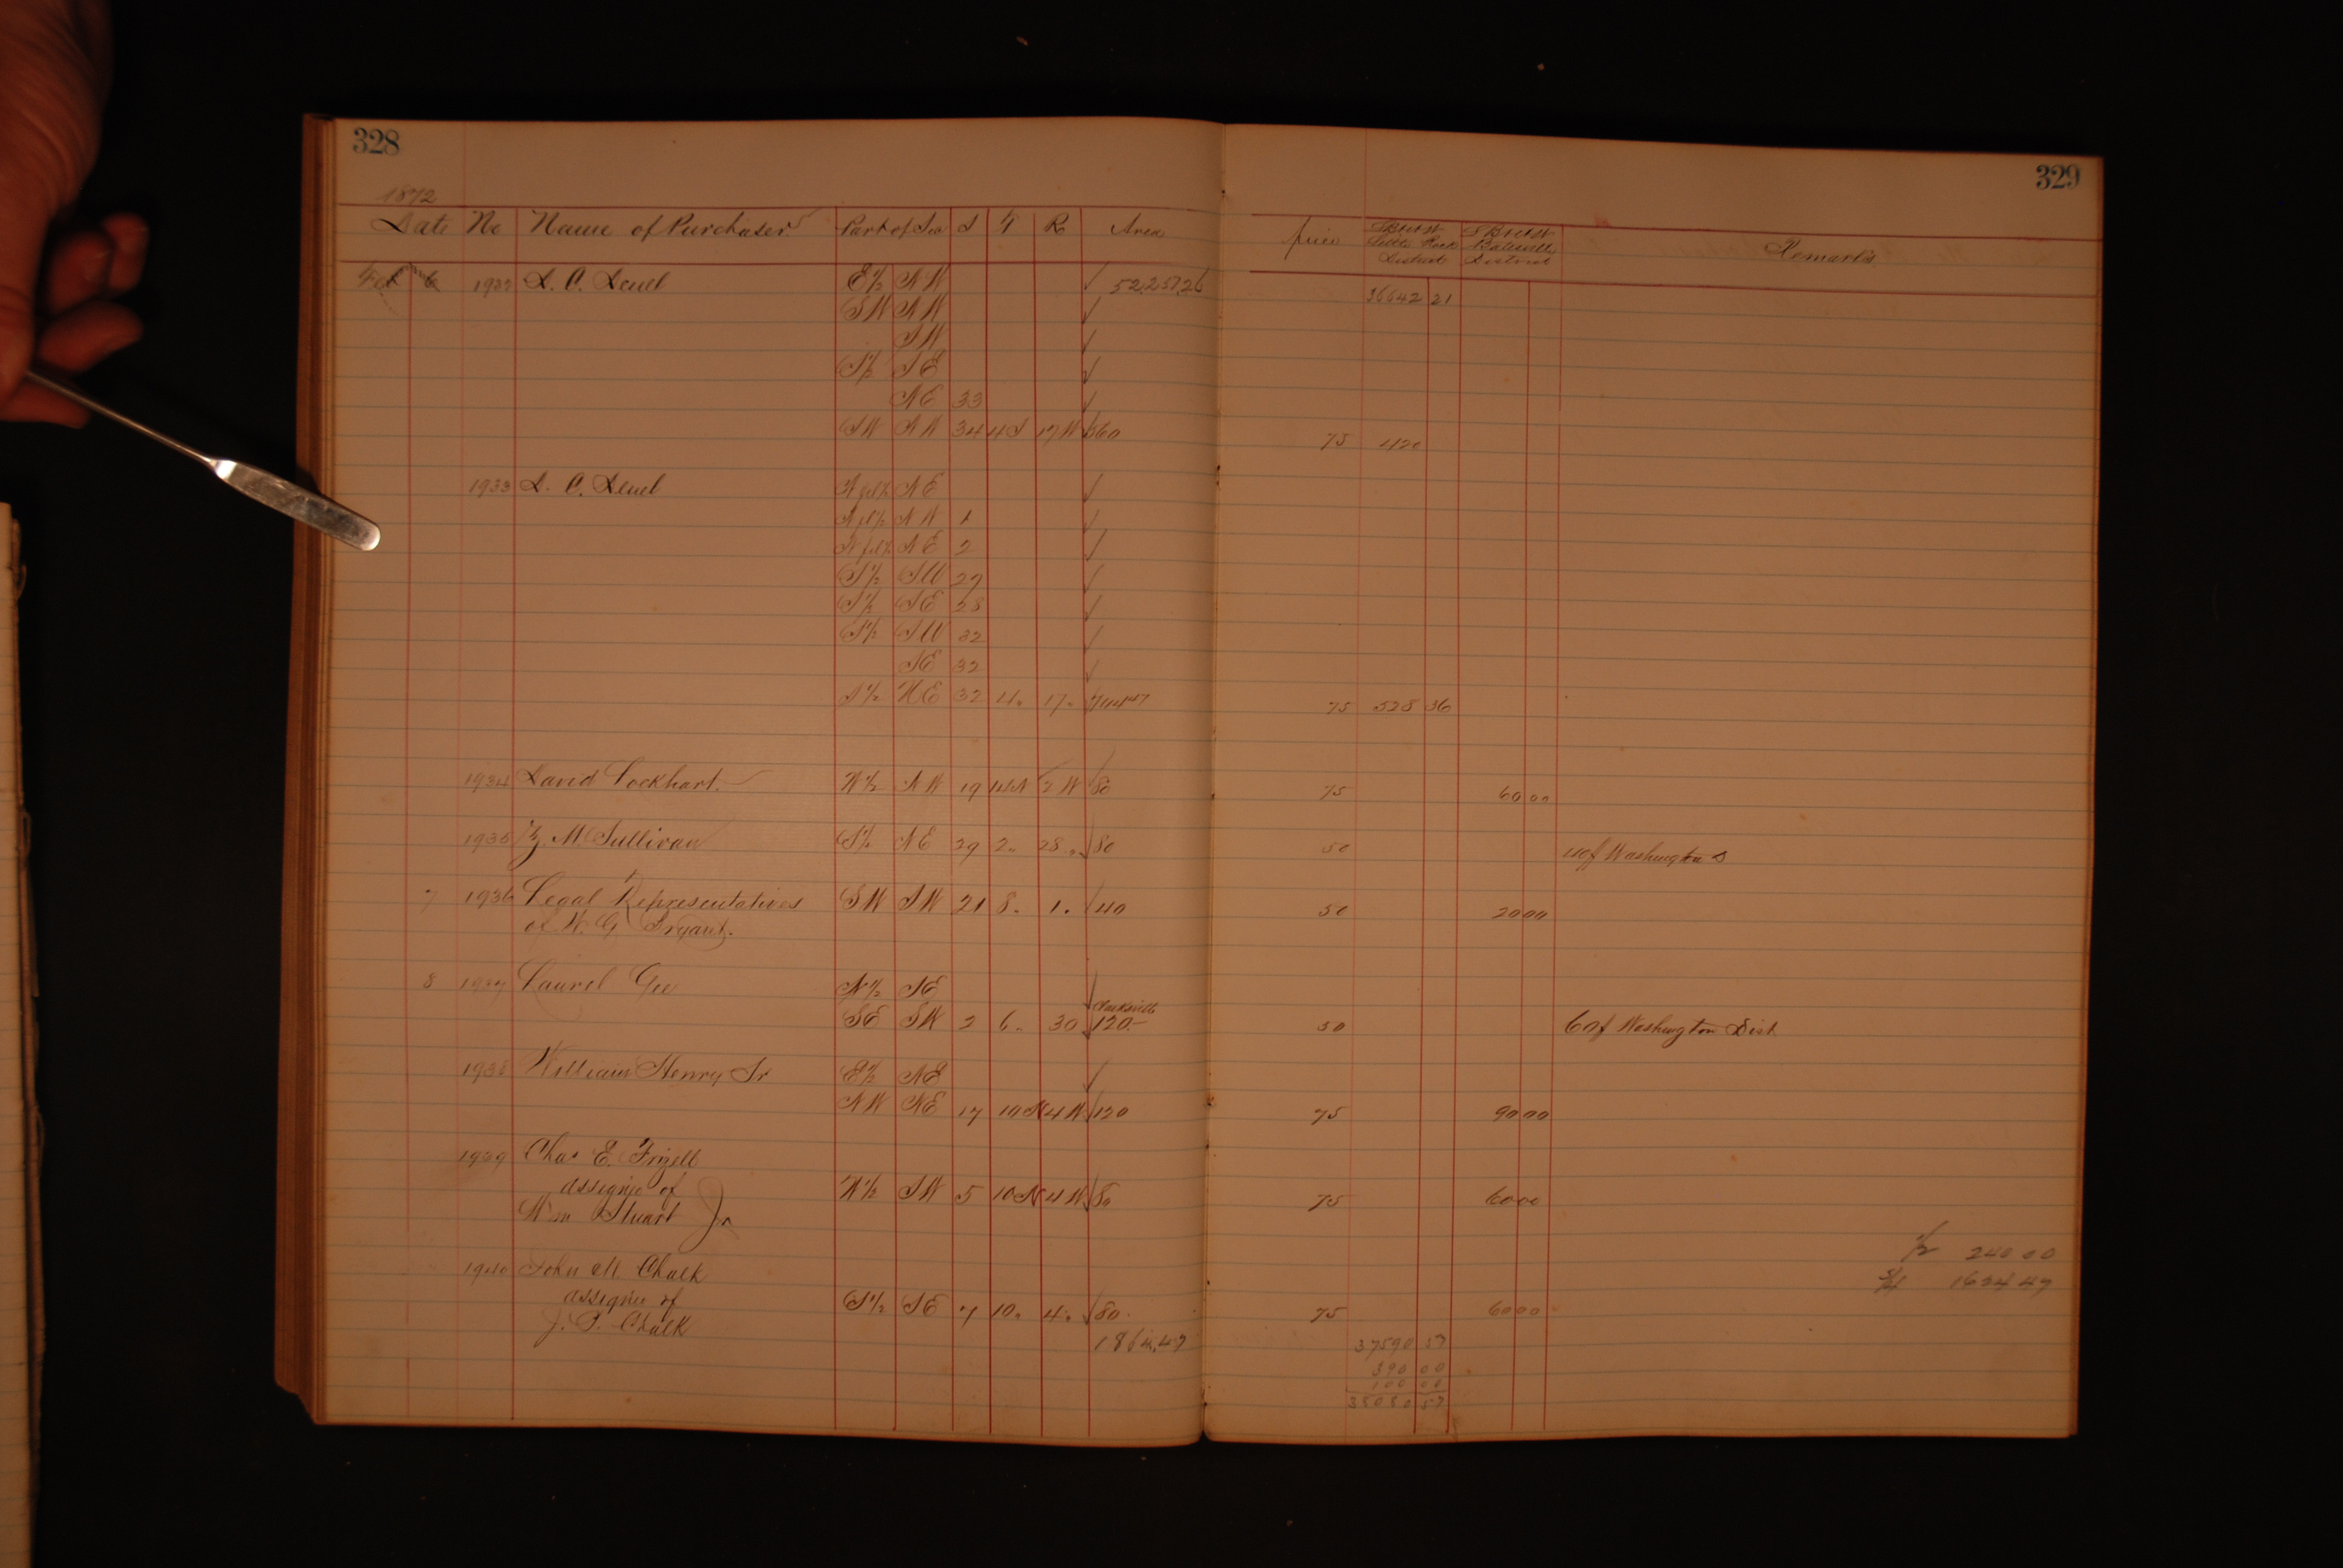 328
329
1872
Date No Name of Purchaser Part of Sec S T R Area price Little Rock District Batesville District Remarks
Feb 6 1932 E½ NW 52,257.26 36642 21
SW NW
SW
S½ SE
NE 33
SW NW 34 4S 17W 560 75 420
1933 NE
NW 1
NE 2
S½ SW 27
S½ SE 28
S½ SW 32
SE 32
S½ NE 32 4 " 17 " 704 47 75 528 36
1934 David Lockhart W½ NW 19 14N 2W 80 75 60 00
1935 Z. M. Sullivan S½ NE 29 2 " 28 " 80 50 Washington
7 1936 Legal Representatives SW SW 21 8 " 1 " 40 50 20 00
of W. G. Bryant.
8 1937 Laurel Gee N½ SE
Clarksville
SE SW 2 6 " 30 120 50 Washington Dist
1938 William Henry Sr E½ NE
NW NE 17 10N 4W 120 75 90 00
1939 Chas E. Frizell
assignee of W½ SW 5 10N 4W 80 75 60 00
Wm Stuart Jr
½ 240 00
1940 John M Chalk
¾ 1624 47
assignee of S½ SE 7 10 " 4 " 80 75 60 00
J. P. Chalk
1864.47 37590 57
390 00
100 00
38080 57